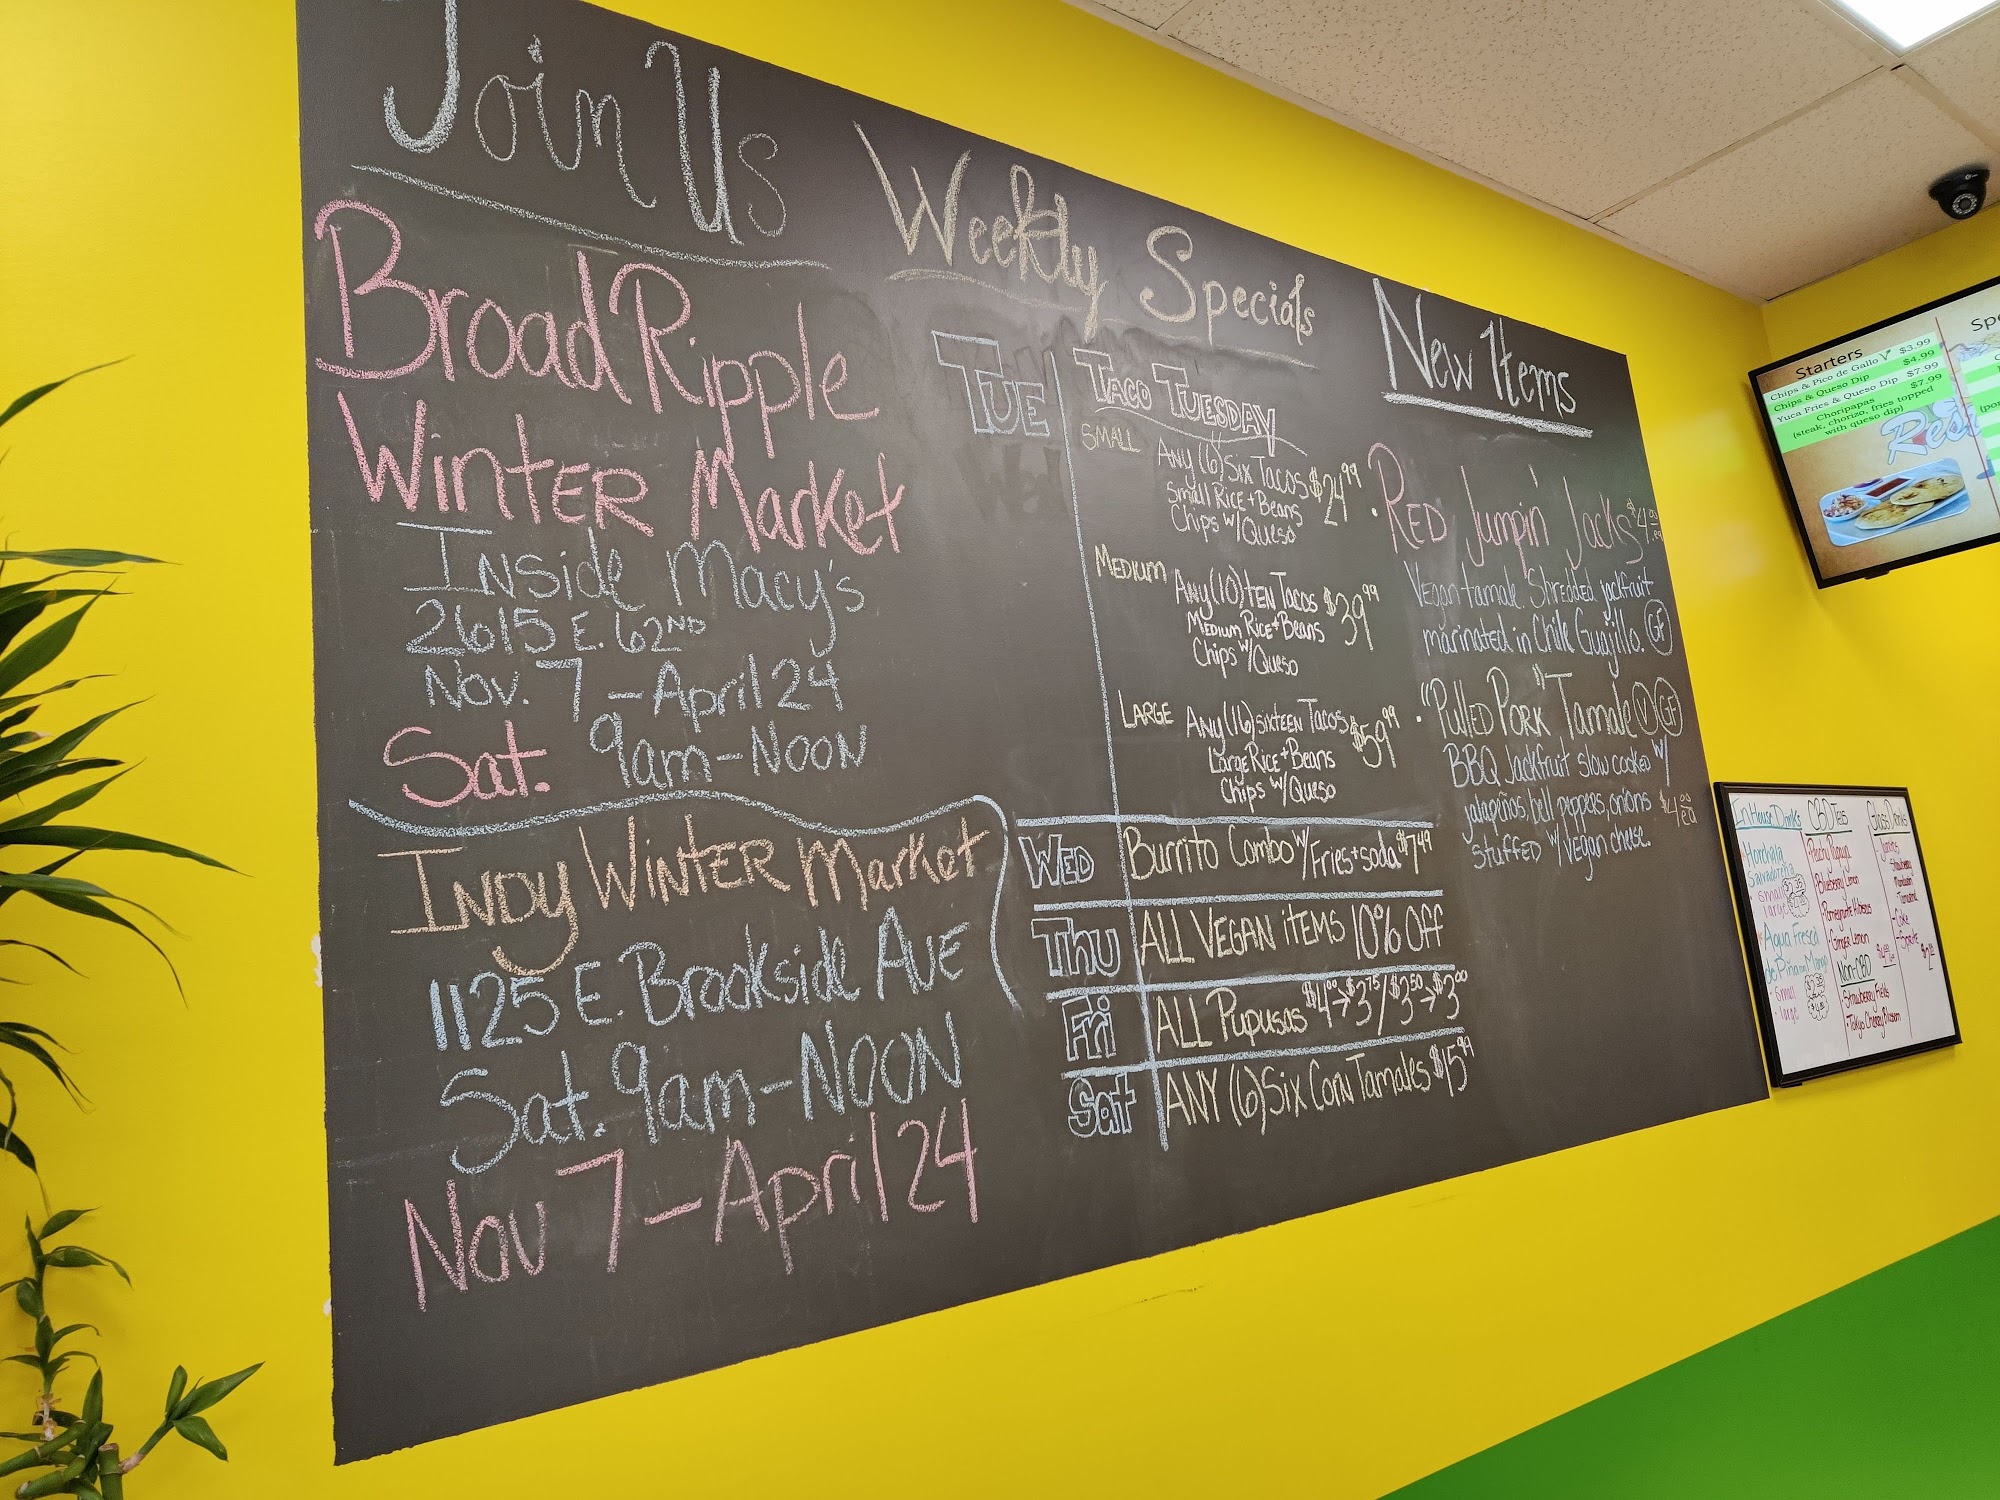 Join Us
Broad Ripple
Winter Market
Inside Macy's
2615 E. 62ND
Nov. 7 - April 24
Sat. 9am-NOON
INDY WINTER Market
1125 E. Brookside AVE
Sat. 9am-NOON
Nov 7 - April 24
Weekly Specials
TUE
TACO TUESDAY
SMALL
ANY (6) Six Tacos $24.99
Small Rice + Beans
Chips w/ Queso
MEDIUM
Any (10) TEN Tacos $39.99
MEDIUM Rice + Beans
Chips w/ Queso
LARGE
Any (16) sixteen Tacos $59.99
Large Rice + Beans
Chips w/ Queso
WED Burrito Combo w/ Fries + soda $7.49
Thu ALL VEGAN iTEMS 10% Off
Fri ALL Pupusas $4.00→$3.75/$3.50→$3.00
Sat ANY (6) Six Corn Tamales $15.99
New Items
• RED Jumpin' Jacks $4.00 ea
Vegan tamale. Shredded jackfruit
marinated in Chile Guajillo. GF
• "PULLED PORK" Tamale V GF
BBQ Jackfruit slow cooked w/
jalapeños, bell peppers, onions $4.00 ea
stuffed w/ vegan cheese.
Starters
Chips & Pico de Gallo V $3.99
Chips & Queso Dip $4.99
Yuca Fries & Queso Dip $7.99
Choripapas $7.99
(steak, chorizo, fries topped
with queso dip)
In House Drinks
Horchata
Salvadoreña
- small
- large
Agua Fresca
de Piña con Mango
- small
- large
CBD Teas
- Peachy Papaya
- Blueberry Lemon
- Pomegranate Hibiscus
- Ginger Lemon
Non-CBD
- Strawberry Fields
- Tokyo Cherry Blossom
Glass Drinks
- Jarritos
Strawberry
Mandarin
Tamarind
- Coke
- Sprite